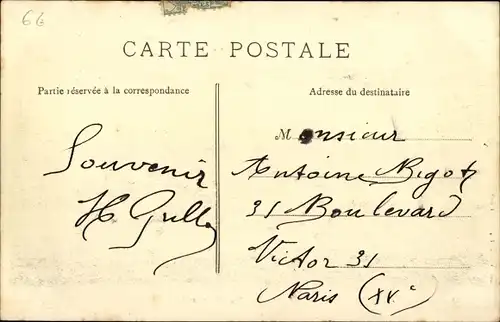 66
CARTE POSTALE
Partie réservée à la correspondance
Adresse du destinataire
Souvenir
Monsieur
Antoine Bigot
31 Boulevard
Victor 31
Paris (XVe